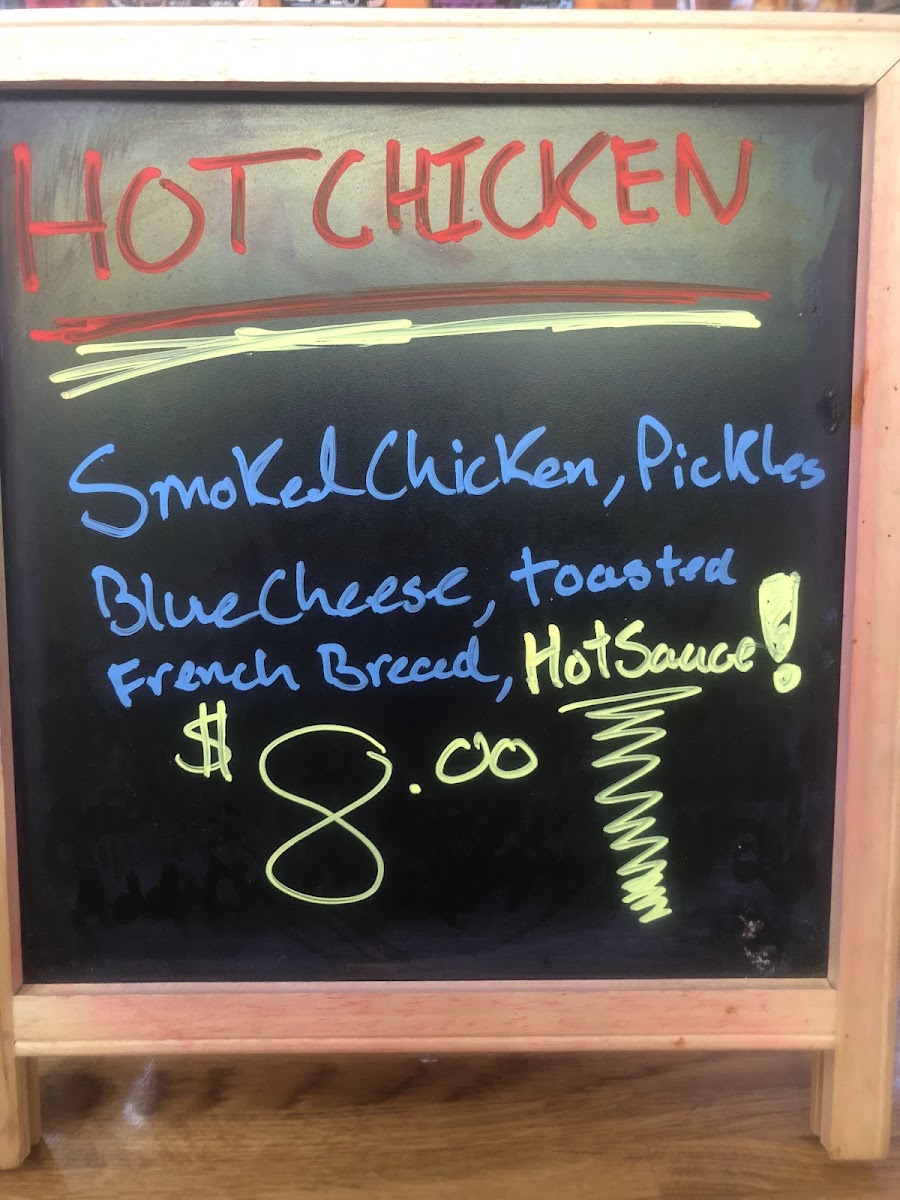 HOT CHICKEN
Smoked Chicken, Pickles
Blue Cheese, toasted
French Bread, Hot Sauce!
$8.00